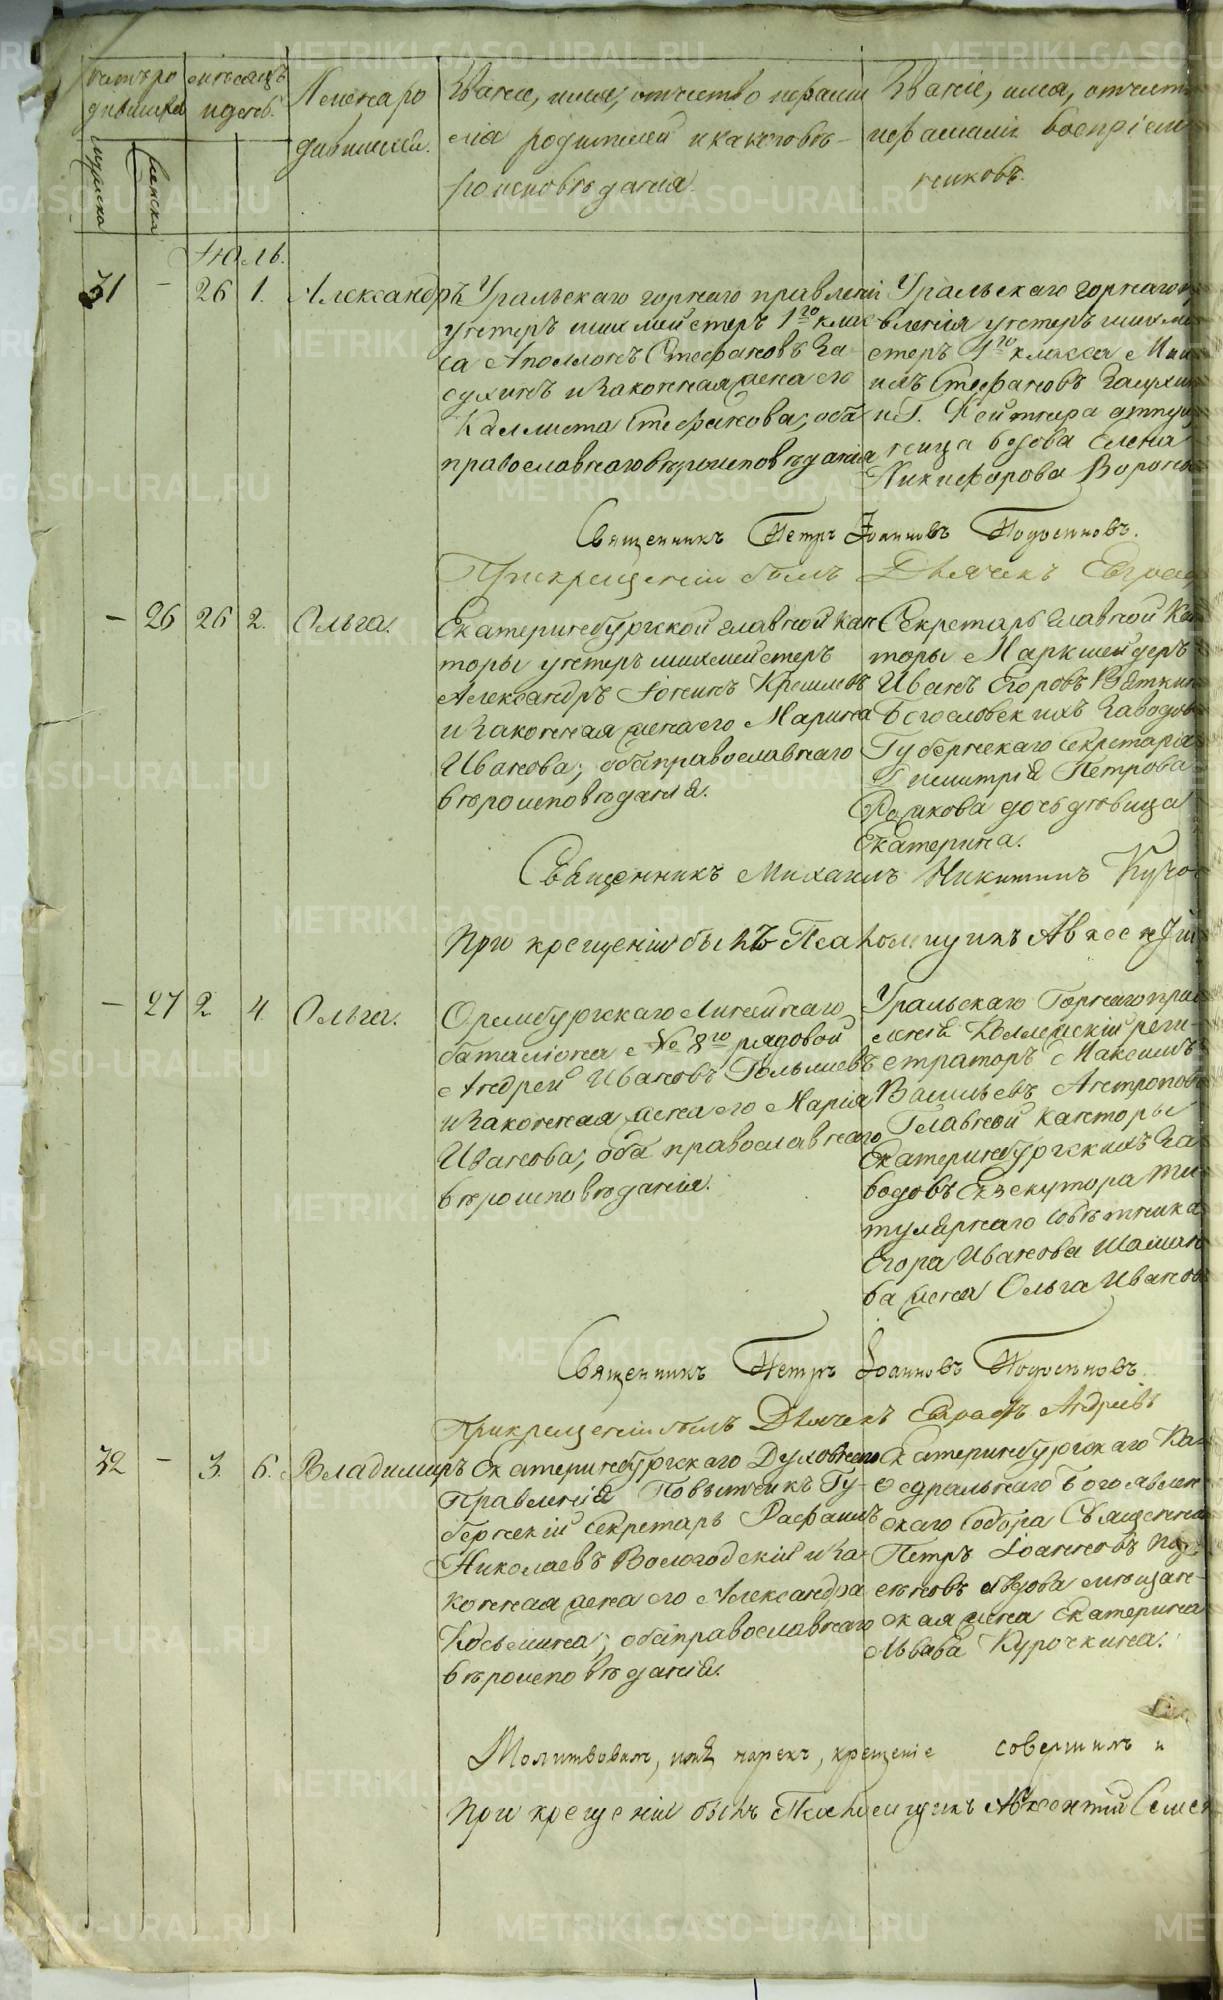 счетъ ро
дившихся
мужска
женска
мѣсяцъ
и день.
Имена ро
дившихся.
Званіе, имя, отчество и фами
лія родителей и какого вѣ-
роисповѣданія.
Званіе, имя, отчест
и фамилія воспріем
никовъ.
Іюль.
31 - 26 1. Александръ
Уральскаго горнаго правленія
унтеръ шихмейстеръ 1го клас
са Аполлонъ Стефановъ За
сухинъ и законная жена его
Каллиста Стефанова, оба
православнаго вѣроисповѣданія
Уральскаго горнаго п
вленія унтеръ шихме
стеръ 1го класса
Стефановъ Засухин
и Г.
вдова Елена
Никифорова Ворон
Священникъ Петръ Іоанновъ Подосеновъ.
При крещеніи былъ Дьячекъ Евграф
- 26 26 2. Ольга.
Екатеринбургской главной кон
торы унтеръ шихмейстеръ
Александръ
и законная жена его Марина
Иванова; оба православнаго
вѣроисповѣданія.
Секретарь главной Кон
торы Маркшейдеръ
Иванъ Егоровъ Вяткин
Богословскихъ заводов
Губернскаго секретаря
Димитрія Петрова
дочь дѣвица
Екатерина.
Священникъ Михаилъ Никитинъ
При крещеніи былъ Псаломщикъ Авксентій
- 27 2 4. Ольга.
Оренбургскаго Линейнаго
баталіона № 8го рядовой
Андрей Ивановъ
и законная жена его Марія
Иванова; оба православнаго
вѣроисповѣданія.
Уральскаго Горнаго прав
ленія Коллежскій реги-
страторъ Максимъ
Васильевъ Антропов
Главной Конторы
Екатеринбургскихъ За
водовъ Екзекутора ти
тулярнаго совѣтника
Егора Иванова
ва жена Ольга Иванов
Священникъ Петръ Іоанновъ Подосеновъ.
При крещеніи былъ Дьячекъ Евграфъ Андреевъ
32 - 3. 6. Владимиръ
Екатеринбургскаго Духовнаго
Правленія Повытчикъ Гу-
бернскій секретарь Рафаилъ
Николаевъ Вологодскій и за-
конная жена его Александра
Косьмина; оба православнаго
вѣроисповѣданія.
Екатеринбургскаго Ка-
ѳедральнаго Богоявлен
скаго Собора Священни
Петръ Іоанновъ Подо
сеновъ вдова мѣщан-
ская жена Екатерина
Львова Курочкина.
Молитвовалъ, имя нарекъ, крещеніе совершилъ и
При крещеніи былъ Псаломщикъ Авксентій Семен